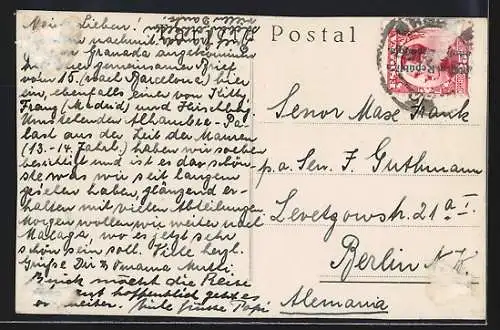 Tarjeta Postal
República
Mein Lieben!
nachmit
in Granada angekommen
gemeinsamer Brief
vom 15. (nach Barcelona) hier
ein, ebenfalls einer von Kitty,
Franz (Madrid) und Hirschberg
Umstehenden Alhambra-Pa-
last aus der Zeit der Mauren
(13.-14. Jahrh.) haben wir soeben
besichtigt und ist es das schön-
ste was wir seit langem
gesehen haben, glänzend er-
halten mit vielen Abteilungen.
Morgen wollen wir weiter nach
Malaga, wo es jetzt sehr
schön sein soll. Viele herzl.
Grüße Dir & Omama Mutti
macht die Reise
gut hoffentlich geht es
weiter. Gute Grüsse Papi
Senor Max Hank
p.a. Sen. F. Guthmann
Levetzowstr. 21 a I.
Berlin N.W.
Alemania